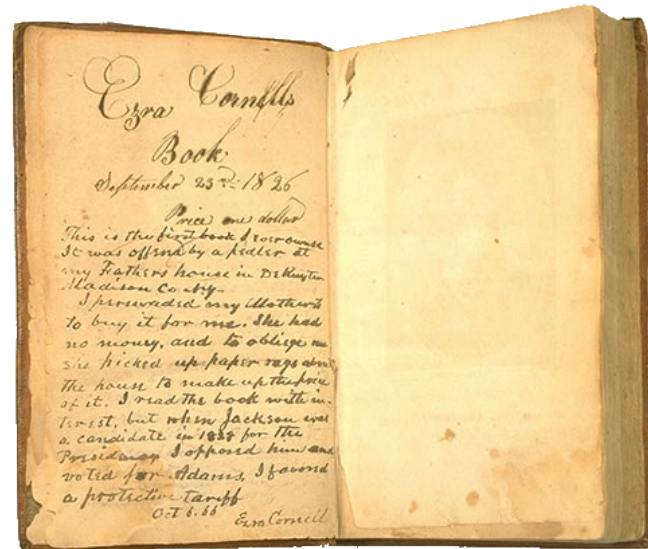 Ezra Cornells
Book
September 23rd 1826
Price one dollar
This is the first book I ever owned
It was offered by a pedler at
my Fathers house in DeRuyter
Madison Co NY-
I perswaded my Mother
to buy it for me. She had
no money, and to oblige me
she picked up paper rags about
the house to make up the price
of it. I read the book with in-
terest, but when Jackson was
a candidate in 1828 for the
Presidency I opposed him and
voted for Adams, I favored
a protective tariff
Oct 6. 66
Ezra Cornell